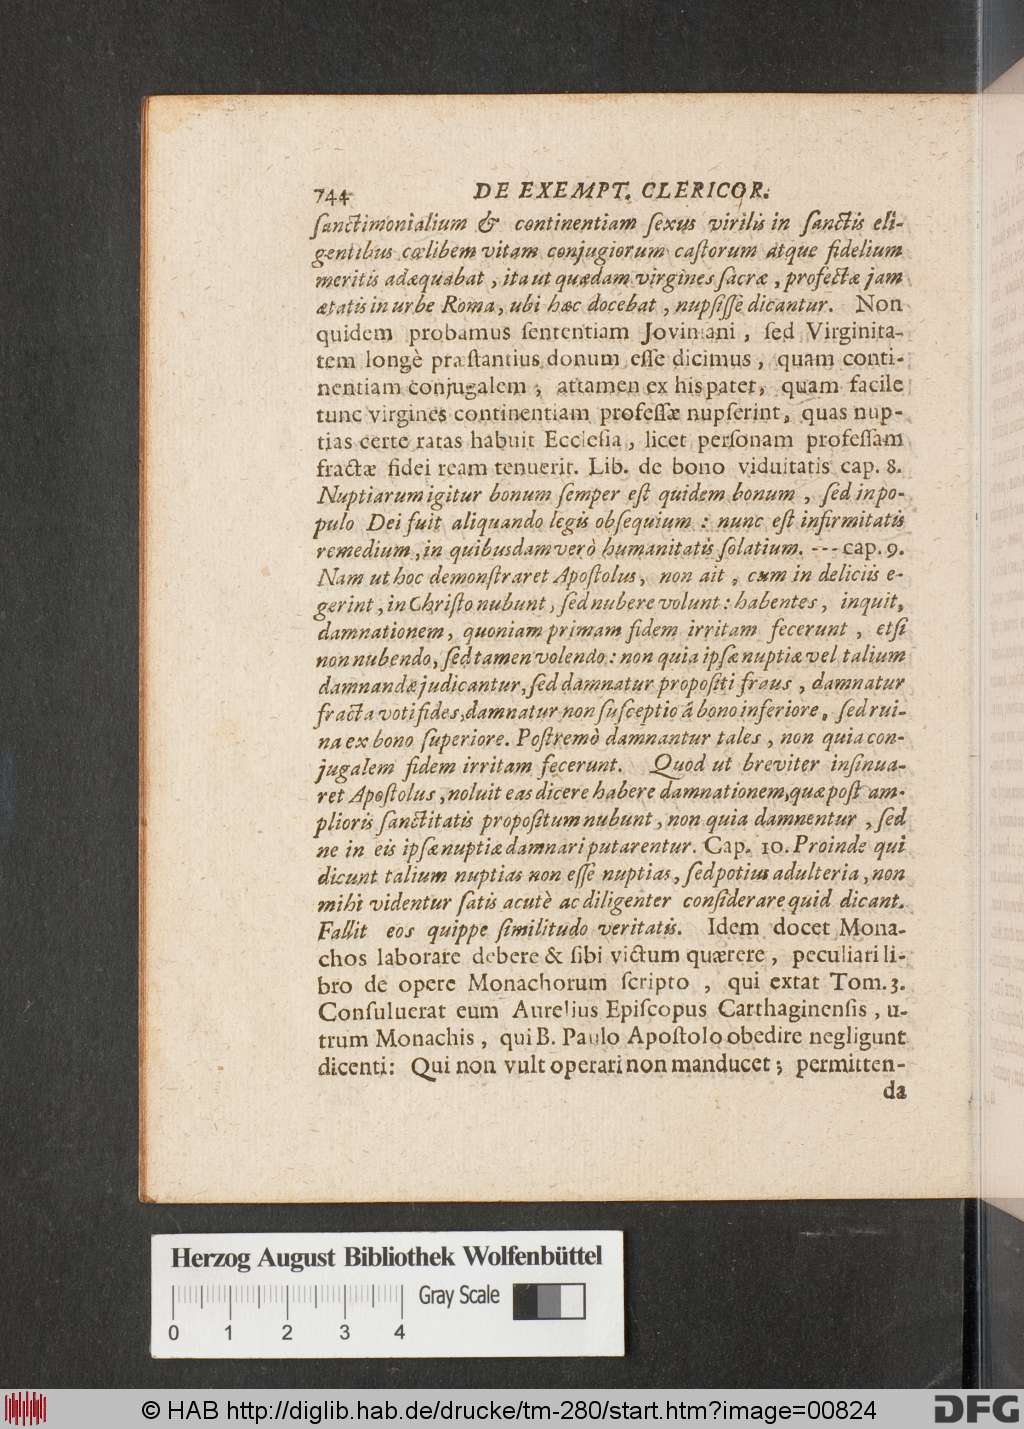 744 DE EXEMPT. CLERICOR.
ſanctimonialium & continentiam ſexus virilis in ſanctis eli-
gentibus cœlibem vitam conjugiorum caſtorum atque fidelium
meritis adæquabat, ita ut quædam virgines ſacræ, profectæ jam
ætatis in urbe Roma, ubi hæc docebat, nupſiſſè dicantur. Non
quidem probamus ſententiam Joviniani, ſed Virginita-
tem longè præſtantius donum eſſe dicimus, quam conti-
nentiam conjugalem; attamen ex his patet, quam facile
tunc virgines continentiam profeſſæ nupſerint, quas nup-
tias certe ratas habuit Eccleſia, licet perſonam profeſſam
fractæ fidei ream tenuerit. Lib. de bono viduitatis cap. 8.
Nuptiarum igitur bonum ſemper eſt quidem bonum, ſed in po-
pulo Dei fuit aliquando legis obſequium: nunc eſt infirmitatis
remedium, in quibusdam verò humanitatis ſolatium. --- cap. 9.
Nam ut hoc demonſtraret Apoſtolus, non ait, cum in deliciis e-
gerint, in Chriſto nubunt, ſed nubere volunt: habentes, inquit,
damnationem, quoniam primam fidem irritam fecerunt, etſi
non nubendo, ſed tamen volendo: non quia ipſæ nuptiæ vel talium
damnandæ judicantur, ſed damnatur propoſiti fraus, damnatur
fracta voti fides, damnatur non ſuſceptio á bono inferiore, ſed rui-
na ex bono ſuperiore. Poſtremò damnantur tales, non quia con-
jugalem fidem irritam fecerunt. Quod ut breviter inſinua-
ret Apoſtolus, noluit eas dicere habere damnationem, quæ poſt am-
plioris ſanctitatis propoſitum nubunt, non quia damnentur, ſed
ne in eis ipſæ nuptiæ damnari putarentur. Cap. 10. Proinde qui
dicunt talium nuptias non eſſe nuptias, ſed potius adulteria, non
mihi videntur ſatis acutè ac diligenter conſiderare quid dicant.
Fallit eos quippe ſimilitudo veritatis. Idem docet Mona-
chos laborare debere & ſibi victum quærere, peculiari li-
bro de opere Monachorum ſcripto, qui extat Tom. 3.
Conſuluerat eum Aurelius Epiſcopus Carthaginenſis, u-
trum Monachis, qui B. Paulo Apoſtolo obedire negligunt
dicenti: Qui non vult operari non manducet; permitten-
da
Herzog August Bibliothek Wolfenbüttel
Gray Scale
0 1 2 3 4
© HAB http://diglib.hab.de/drucke/tm-280/start.htm?image=00824
DFG